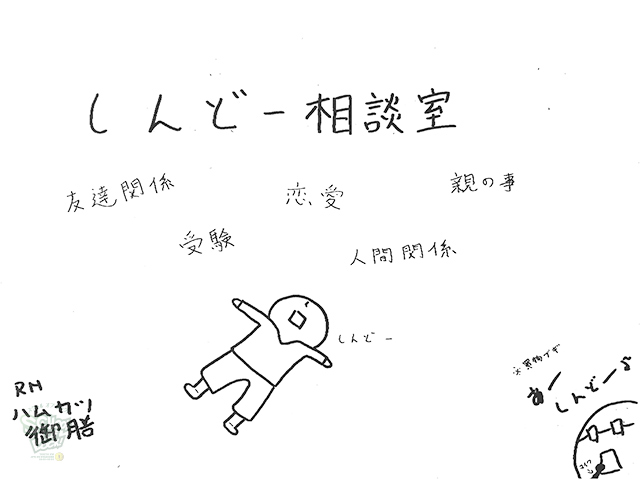 しんどー相談室
友達関係
恋愛
親の事
受験
人間関係
しんどー
RN
ハムカツ
御膳
あー
しんどー